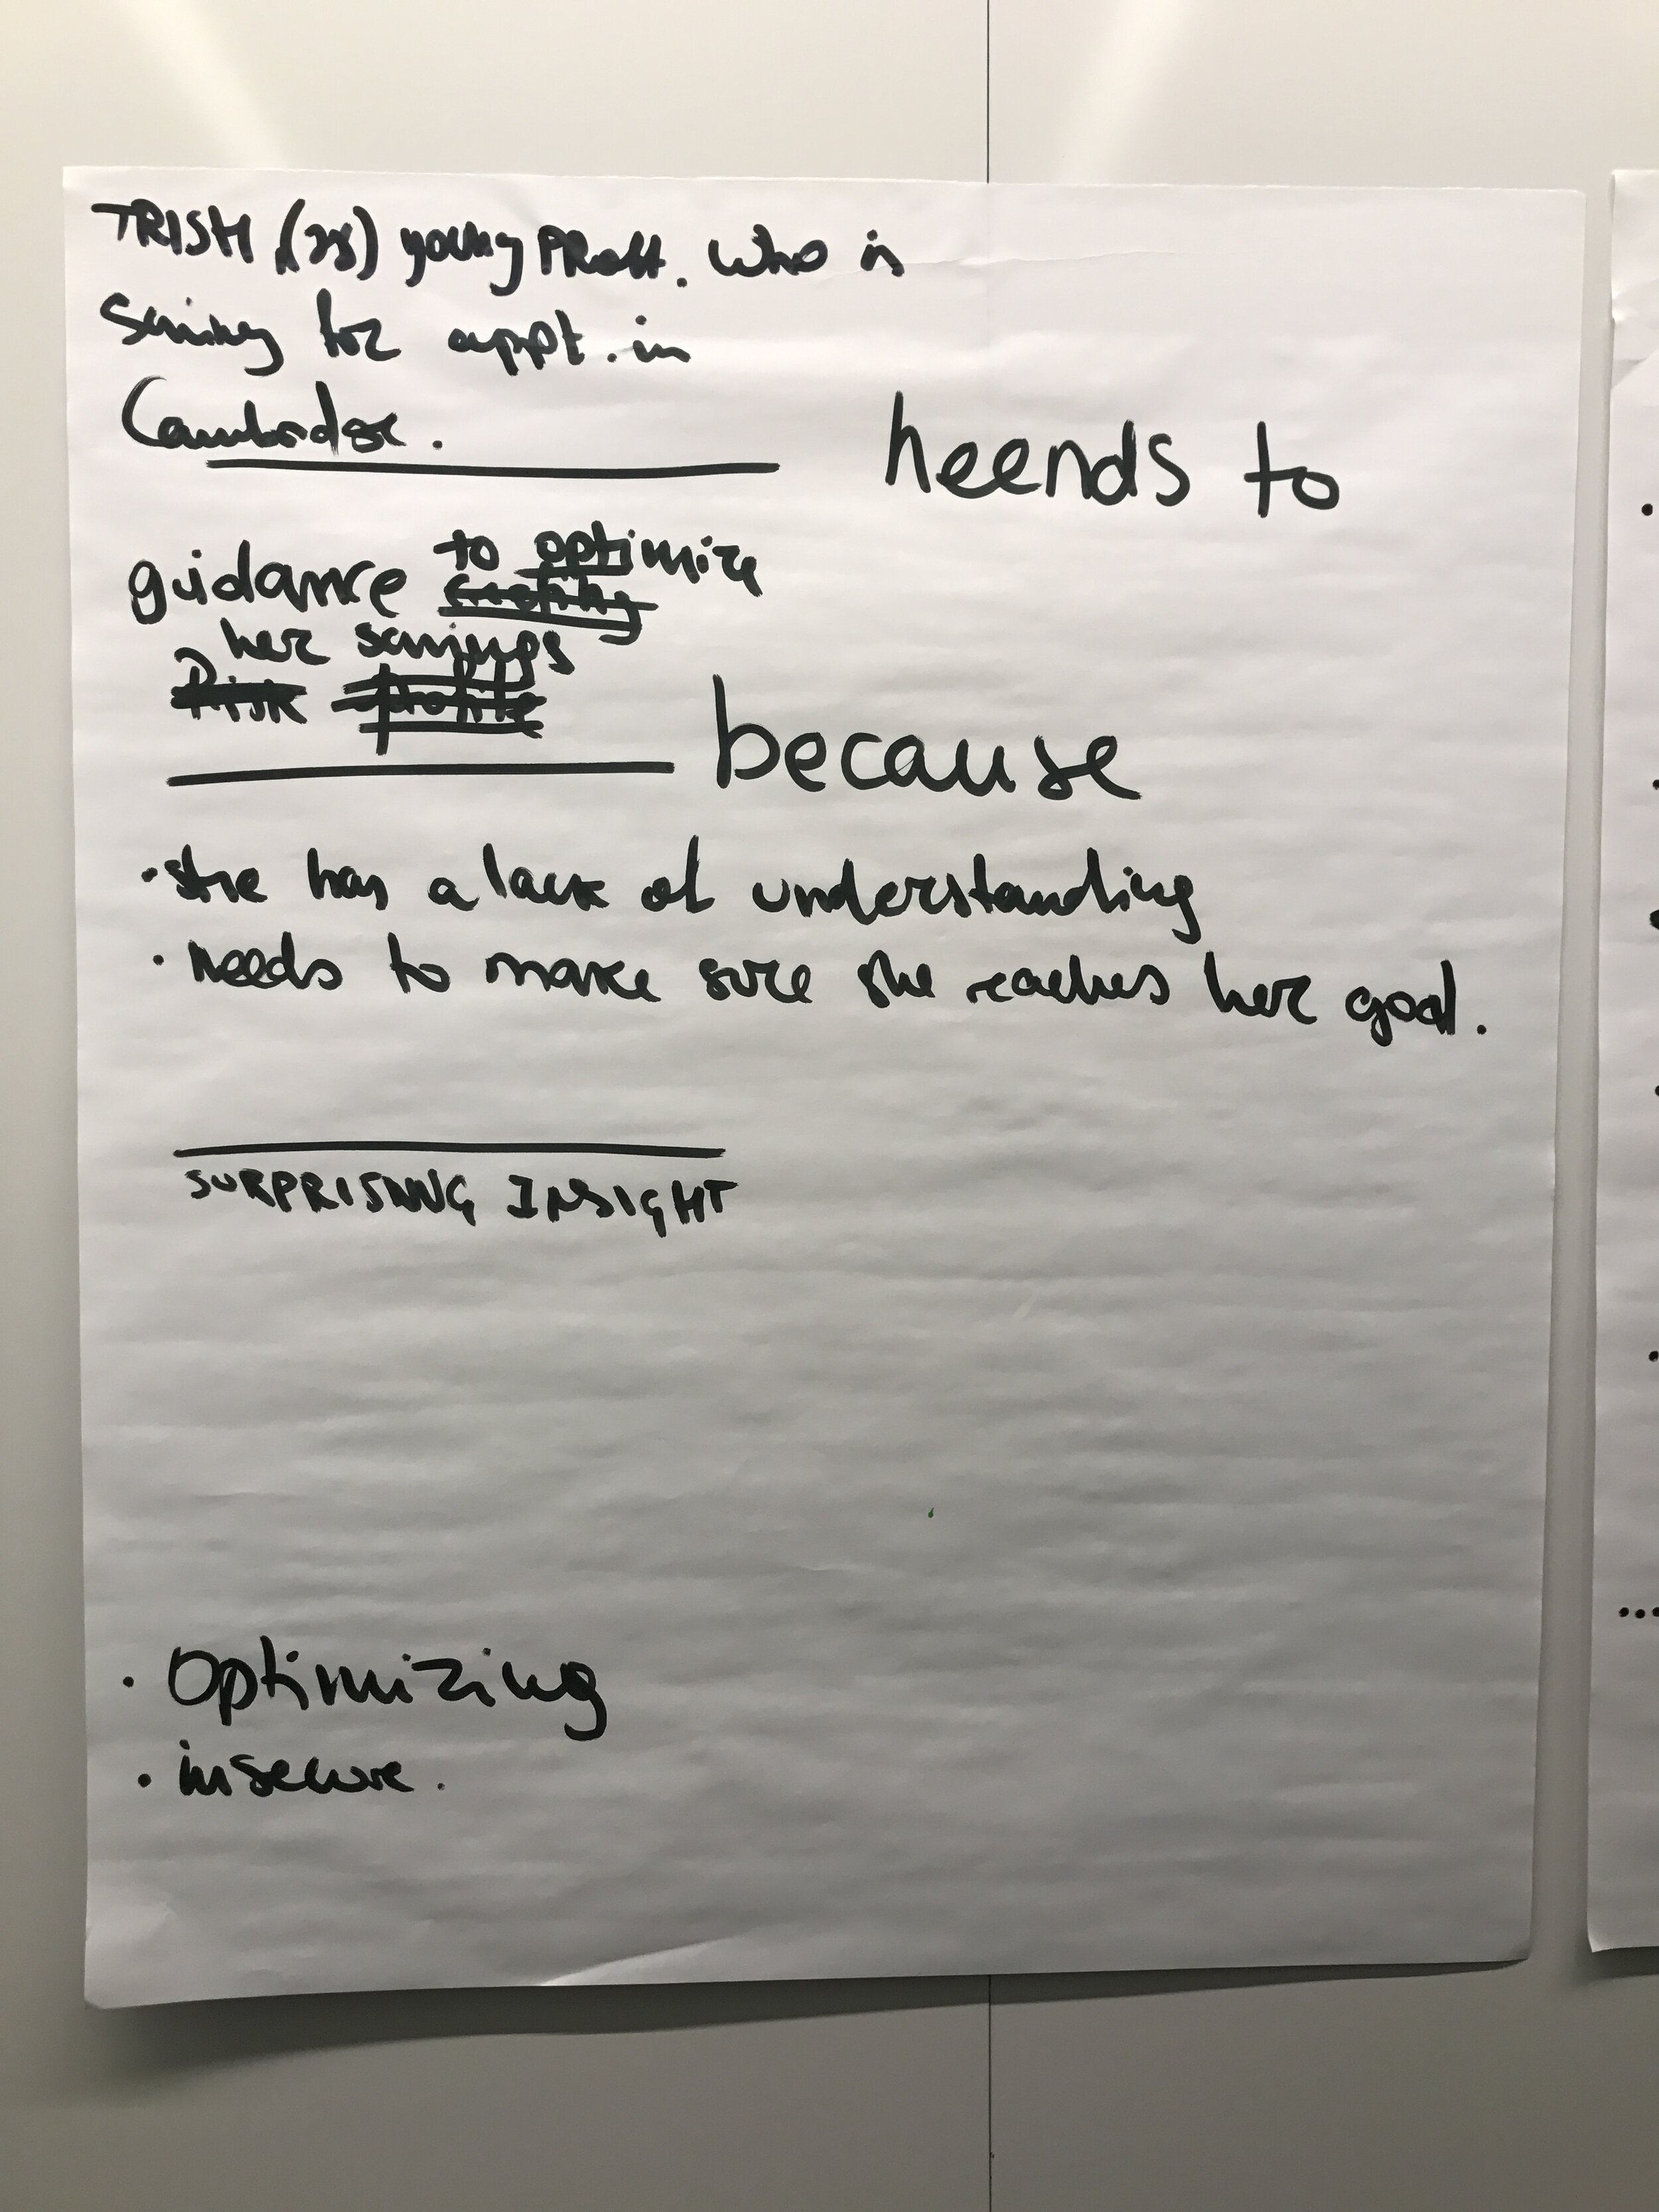 TRISH (28) young PRoff. who is
saving for appt. in
Cambridge.
heends to
to optimize
guidance creating
her savings
Risk profile
because
• she has a lack of understanding
• needs to make sure she reaches her goal.
SURPRISING INSIGHT
• Optimizing
• insecure.